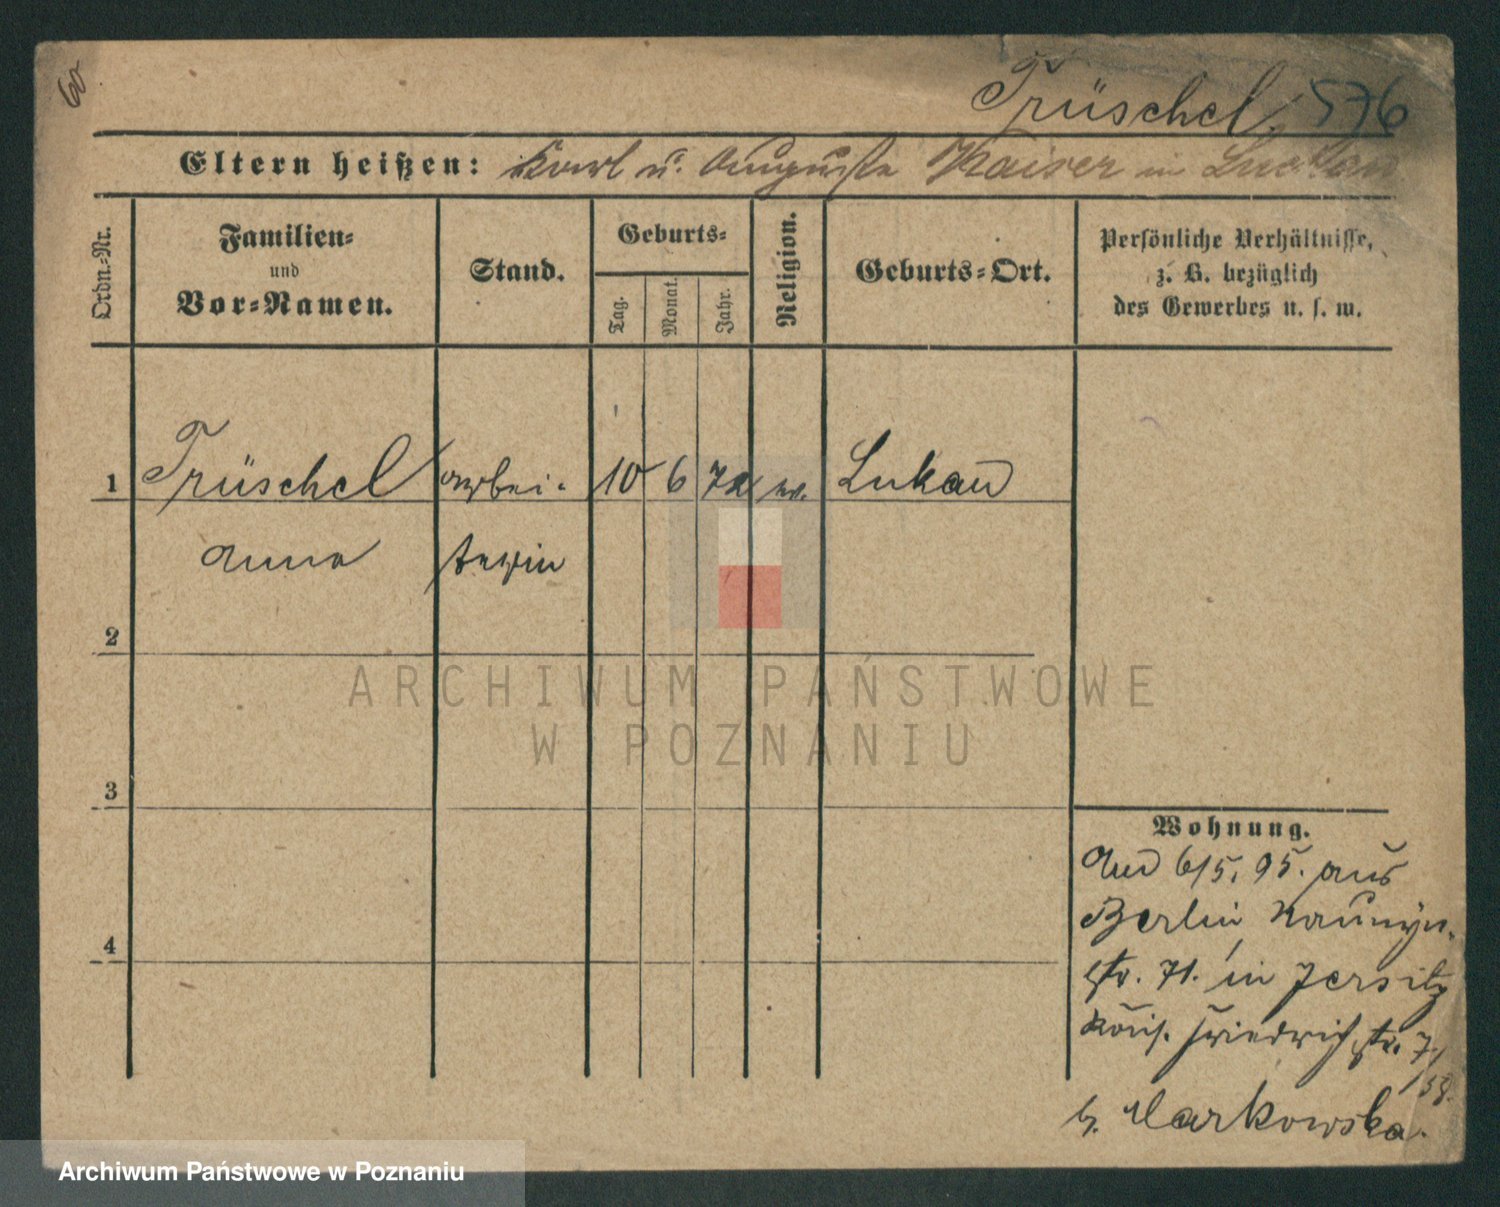 60
Trüschel, 576
Eltern heißen: Karl u. Auguste Kaiser in Luckau
Ordn.=Nr.
Familien=
und
Vor=Namen.
Stand.
Geburts=
Tag.
Monat.
Jahr.
Religion.
Geburts=Ort.
Persönliche Verhältnisse,
z. B. bezüglich
des Gewerbes u. s. w.
1 Trüschel arbei- 10 6 72 Lukau
Anna terin
2
ARCHIWUM PAŃSTWOWE
W POZNANIU
3
Wohnung.
6/5. 95. aus
Berlin Naunyn-
str. 71. in Jersitz
Friedrichstr. 7.
4
b. Markowska.
Archiwum Państwowe w Poznaniu